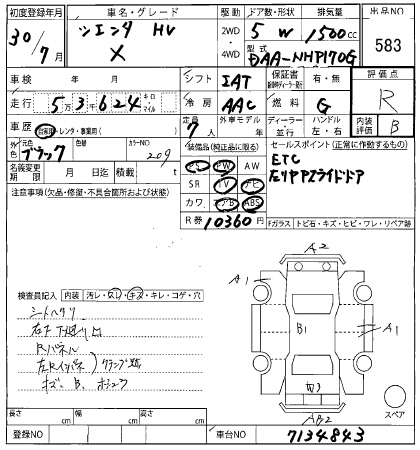 初度登録年月 車名・グレード 駆動 ドア数・形状 排気量 出品NO
30/7月 シエンタ HV 2WD 4WD 5 W 1500cc 583
X 型式 DAA-NHP170G
車検 年 月 シフト IAT 保証書 有・無 評価点
走行 5万3千624 キロ・マイル 冷房 AAC 燃料 G R
車歴 自家用・レンタ・事業用( ) 定員 7人 外車モデル 年 ディーラー・並行 ハンドル 左・右 内装評価 B
外色 元色 ブラック 色替 カラーNO 209 装備品(純正品に限る) セールスポイント(正常に作動するもの)
名義変更期限 月 日迄 積載 t PS PW AW ETC
注意事項(欠品・修復・不具合箇所および状態) SR TV ナビ 左リアPスライドドア
カワ エアB ABS
R券 10360円 Fガラス トビ石・キズ・ヒビ・ワレ・リペア跡
A2
検査員記入 内装 汚レ・スレ・キズ・キレ・コゲ・穴 A1
シートヘタリ
右下下廻り凹 B1 A1
Rパネル
左Rインパネ クランプ跡
キズ、B、
W3
AB2 スペア
長さ cm 幅 cm 高さ cm
登録NO 車台NO 7134843